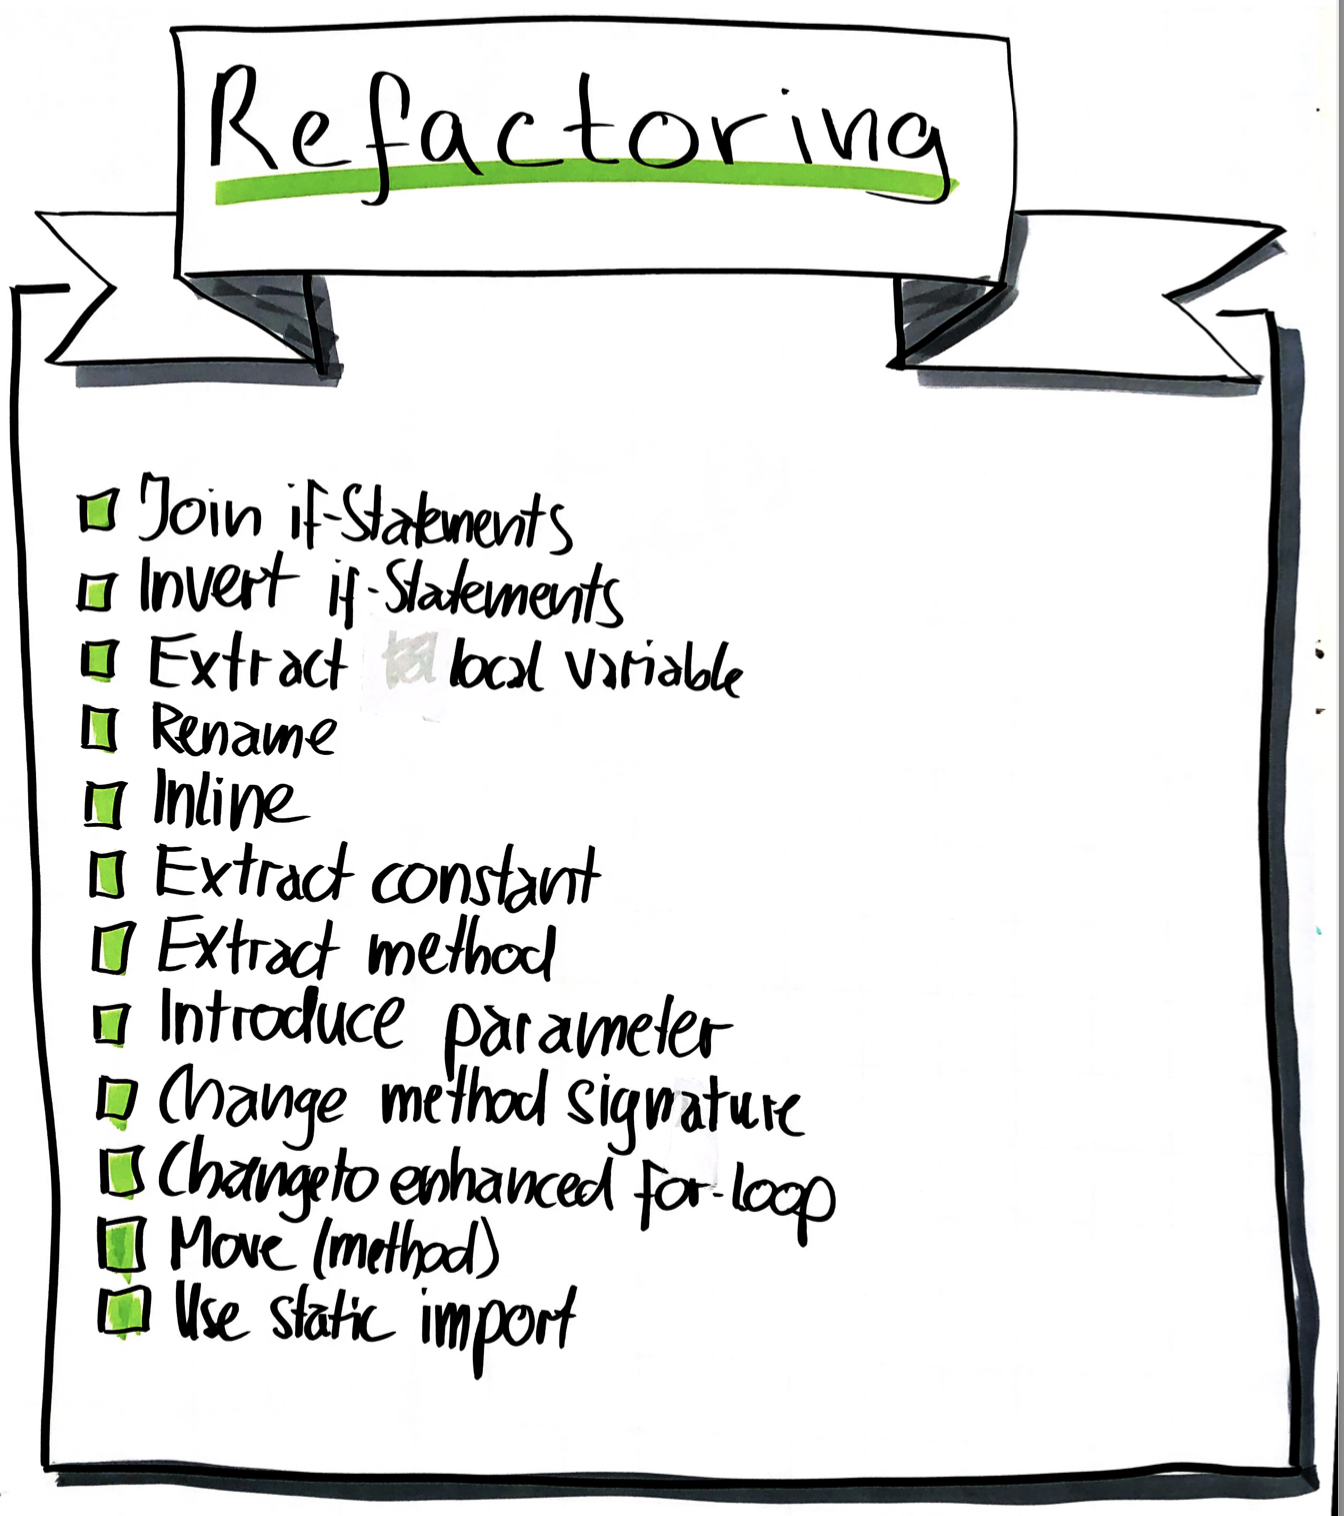 Refactoring
Join if-Statements
Invert if-Statements
Extract local variable
Rename
Inline
Extract constant
Extract method
Introduce parameter
Change method signature
Change to enhanced for-loop
Move (method)
Use static import